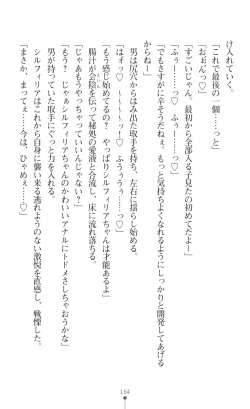 け入れていく。
「これで最後の一個……っと」
「おぉんっ♡」
「すごいじゃん。最初から全部入る子見たの初めてだよー」
「ふぅーー……っ♡　ふぅーー……っ♡」
「でもさすがに辛そうだねぇ。もっと気持ちよくなれるようにしっかりと開発してあげる
からねー」
男は尻穴からはみ出た取手を持ち、左右に揺らし始める。
「はォッ♡　～～～～ッ！♡　ふうぅうぅ……っ♡」
「もう感じ始めてるの？　やっぱりシルフィリアちゃんは才能あるよ」
腸汁が会陰を伝って秘処の愛液と合流し、床に流れ落ちる。
「じゃぁもうやっちゃっていいんじゃない？」
「もう？　じゃぁシルフィリアちゃんのかわいいアナルにトドメさしちゃおうかな」
男が持っていた取手にぐっと力を入れる。
シルフィリアはこれから自身に襲い来る逃れようのない激悦を直感し、戦慄した。
「まさか、まってぇ……今は、ひゃめぇ……♡」
164